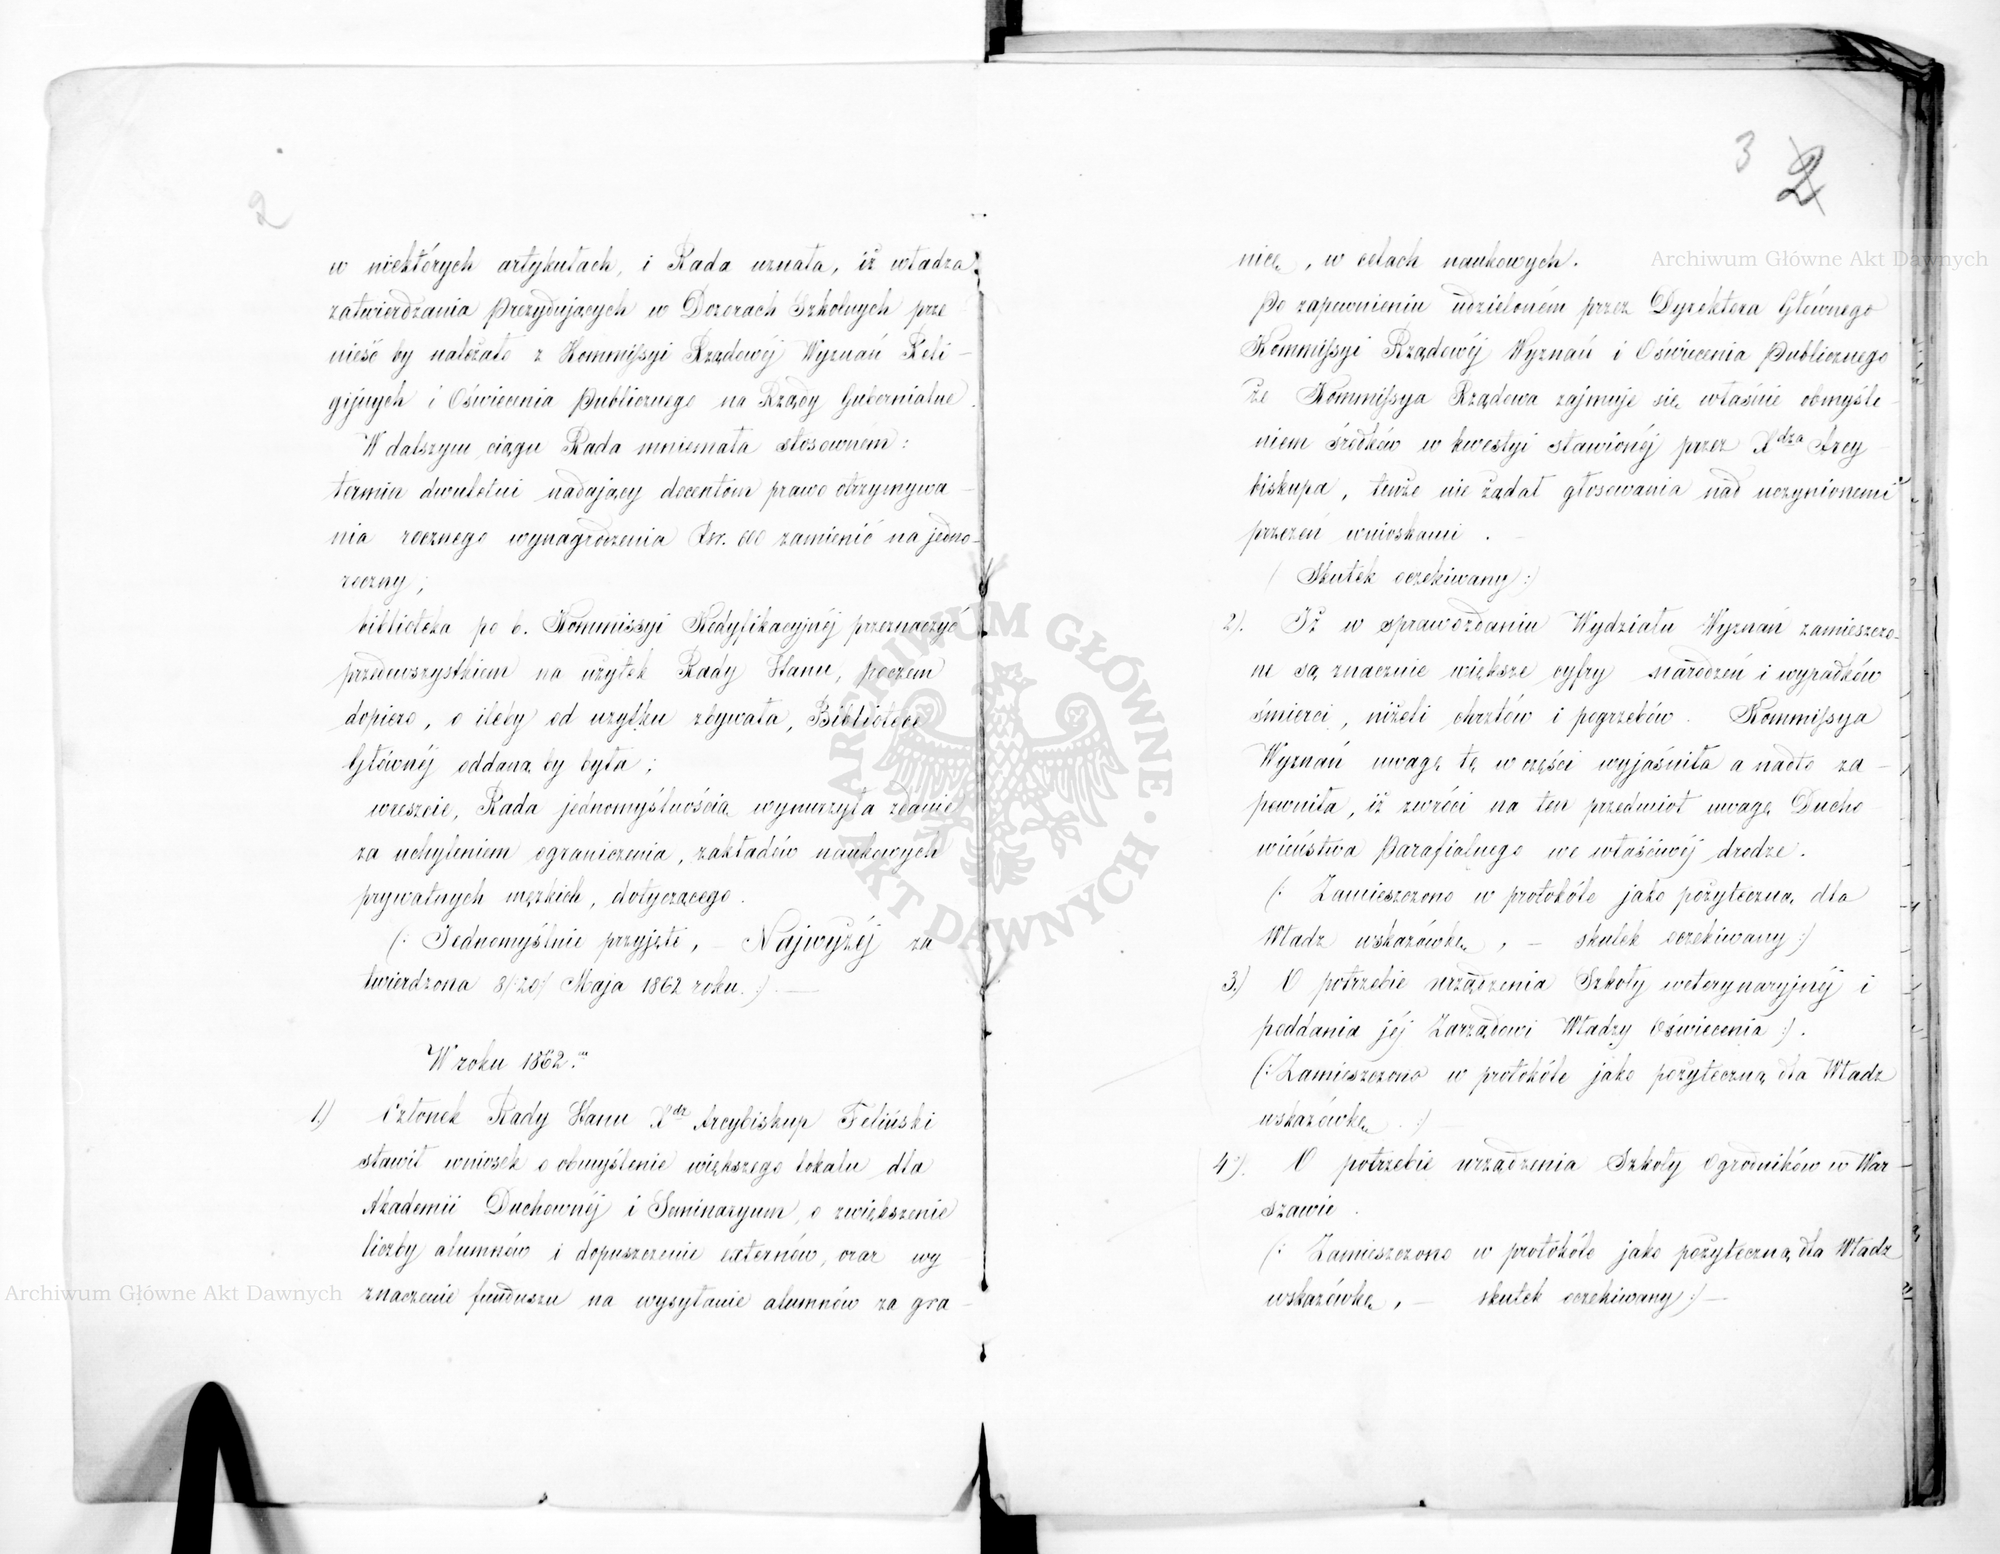 2
w niektórych artykułach, i Rada uznała, iż władza
zatwierdzania Prezydujących w Dozorach Szkolnych prze
nieść by należało z Kommissyi Rządowéj Wyznań Reli-
gijnych i Oświecenia Publicznego na Rządy Gubernialne.
W dalszym ciągu Rada mniemała stosowném:
termin dwuletni nadający docentom prawo otrzymywa-
nia rocznego wynagrodzenia Rsr. 600 zamienić na jedno-
roczny;
biblioteka po b. Kommissyi Kodyfikacyjnéj przeznaczyć
przedewszystkiem na użytek Rady Stanu, poczem
dopiero, o ileby od użytku zbywała, Bibliotece
Głównéj oddaną by była;
wreszcie, Rada jednomyślnością wynurzyła zdanie
za uchyleniem ograniczenia, zakładów naukowych
prywatnych męzkich, dotyczącego.
(: Jednomyślnie przyjęte, – Najwyżéj za
twierdzona 8/20/ Maja 1862 roku. :) –
W roku 1862.
1.) Członek Rady Stanu Xdz Arcybiskup Feliński
stawił wniosek o obmyślenie większego lokalu dla
Akademii Duchownéj i Seminaryum, o zwiększenie
liczby alumnów i dopuszczenie externów, oraz wy
znaczenie funduszu na wysyłanie alumnów za gra-
3 2
nicę, w celach naukowych.
Po zapewnieniu udzieloném przez Dyrektora Głównego
Kommissyi Rządowéj Wyznań i Oświecenia Publicznego
że Kommissya Rządowa zajmuje się właśnie obmyśle-
niem środków w kwestyi stawionéj przez Xdza Arcy-
biskupa, tenże nie żądał głosowania nad uczynionemi
przezeń wnioskami.
( Skutek oczekiwany :)
2). Iż w sprawozdaniu Wydziału Wyznań zamieszczo-
ne są znacznie większe cyfry narodzeń i wypadków
śmierci, niżeli chrztów i pogrzebów. Kommissya
Wyznań uwagę tę w części wyjaśniła a nadto za-
pewniła, iż zwróci na ten przedmiot uwagę Ducho-
wieństwa Parafialnego we właściwéj drodze.
(: Zamieszczono w protokóle jako pożyteczną dla
Władz wskazówkę, – skutek oczekiwany :)
3.) O potrzebie urządzenia Szkoły weterynaryjnéj i
poddania jéj Zarządowi Władzy Oświecenia :).
(: Zamieszczono w protokóle jako pożyteczną dla Władz
wskazówkę. :)
4.) O potrzebie urządzenia Szkoły Ogrodników w War-
szawie.
(: Zamieszczono w protokóle jako pożyteczną dla Władz
wskazówkę, – skutek oczekiwany :) –
Archiwum Główne Akt Dawnych
Archiwum Główne Akt Dawnych
ARCHIWUM GŁÓWNE AKT DAWNYCH